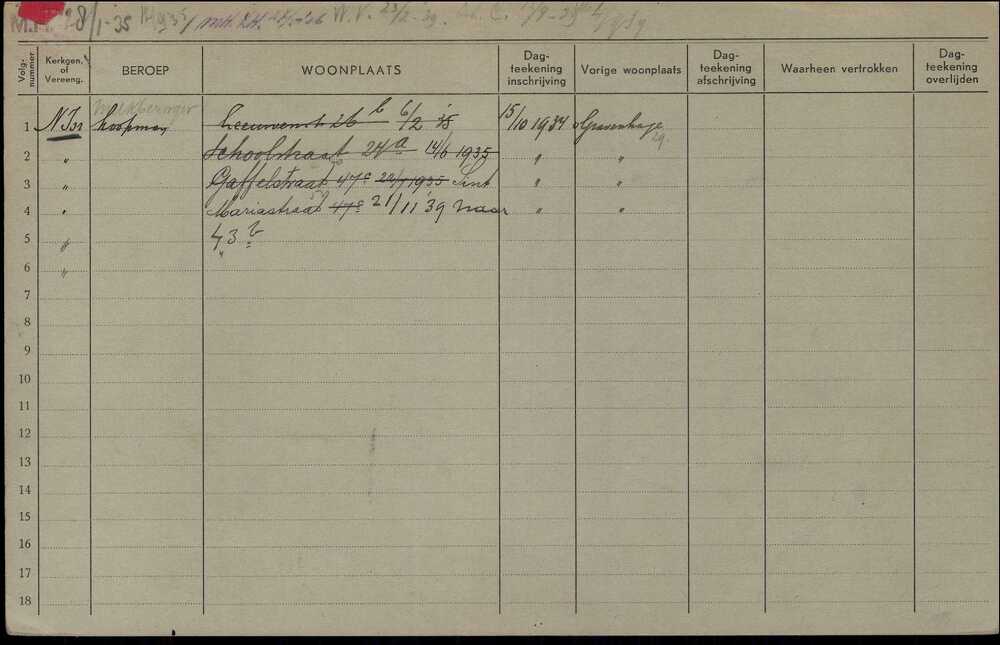 28/1-35 W.V. 23/2-39.
Volg-nummer Kerkgen. of Vereeng. BEROEP WOONPLAATS Dag-teekening inschrijving Vorige woonplaats Dag-teekening afschrijving Waarheen vertrokken Dag-teekening overlijden
1 N Isr koopman Leeuwenst 26 b 6/2 '35 15/10 1934 sGravenhage
2 " Schoolstraat 24 a 14/6 1935 " "
3 " Gaffelstraat 47 c 22/7 1935 Sint " "
4 " Mariastraat 47 c 21/11 '39 naar " "
5 " 43 b
6 " "
7
8
9
10
11
12
13
14
15
16
17
18